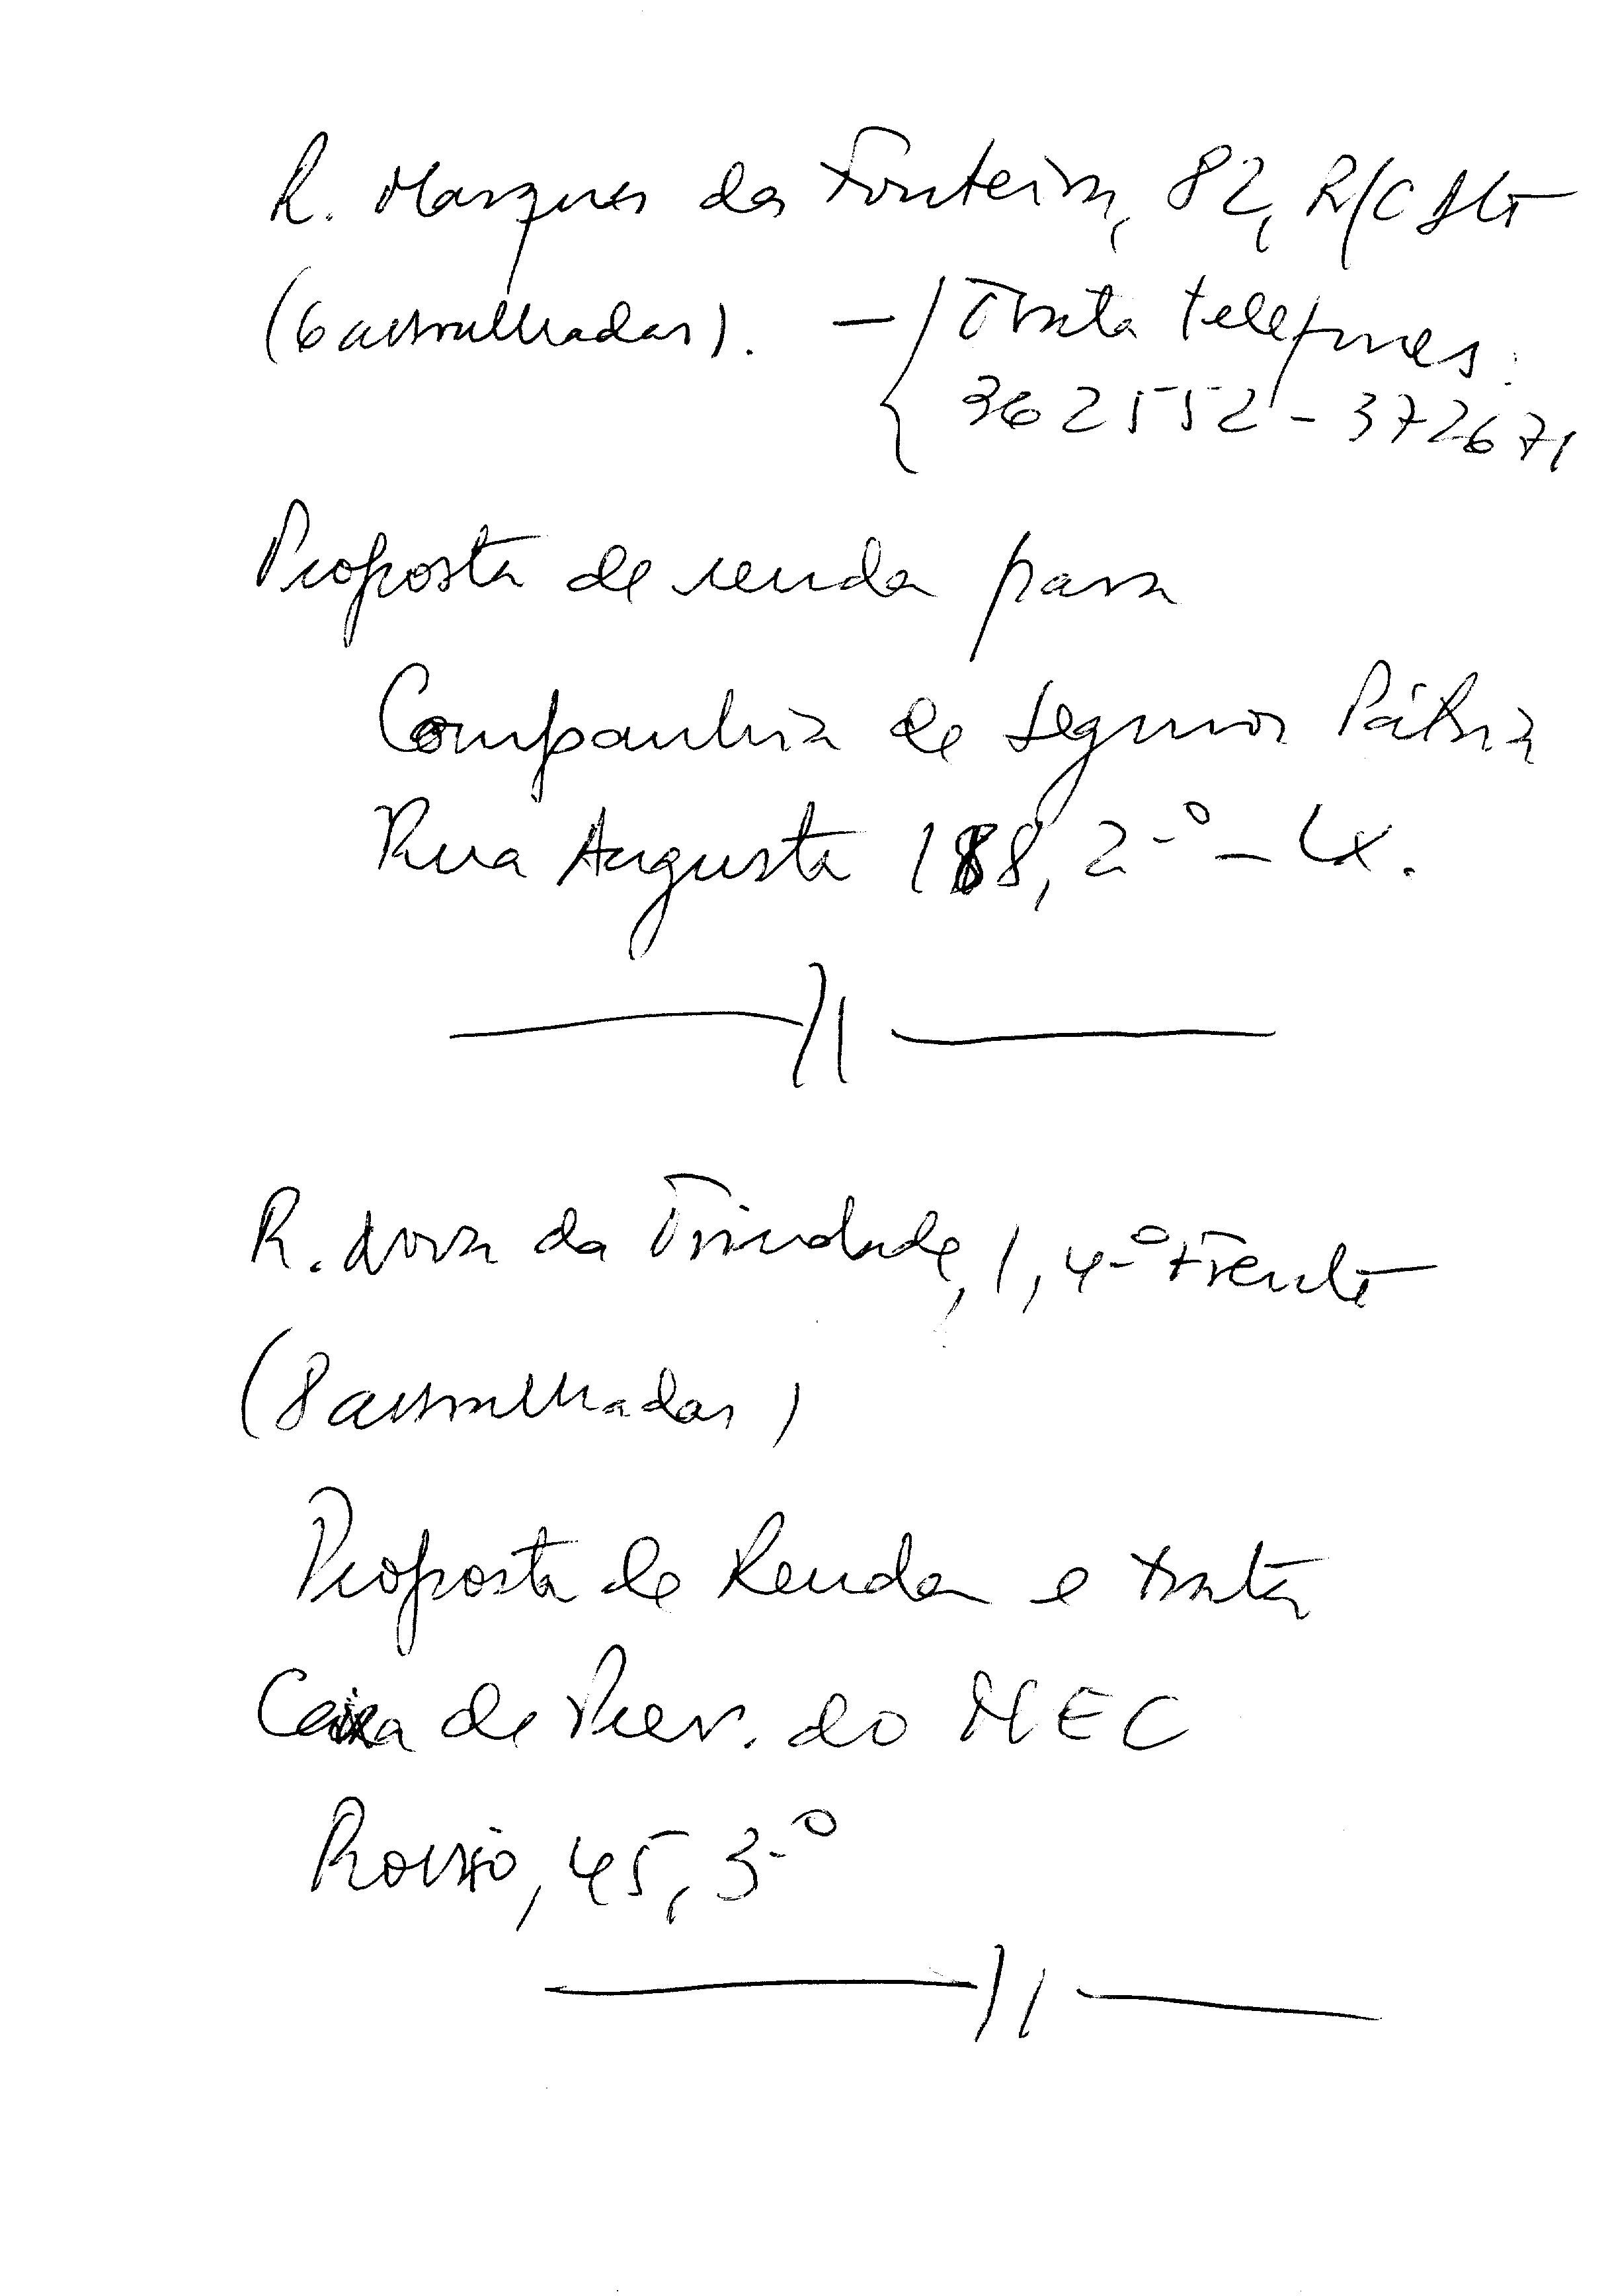 R. Marques da Fronteira, 82, R/C Alt
(6 assoalhadas). — Trata telefones:
362552 - 372671
Proposta de renda para
Companhia de Seguros Pátria
Rua Augusta 188, 2.º - Lx.
R. Nova da Trindade, 1, 4.º Frente
(8 assoalhadas)
Proposta de Renda e trata
Caixa de Prev. do MEC
Rossio, 45, 3.º